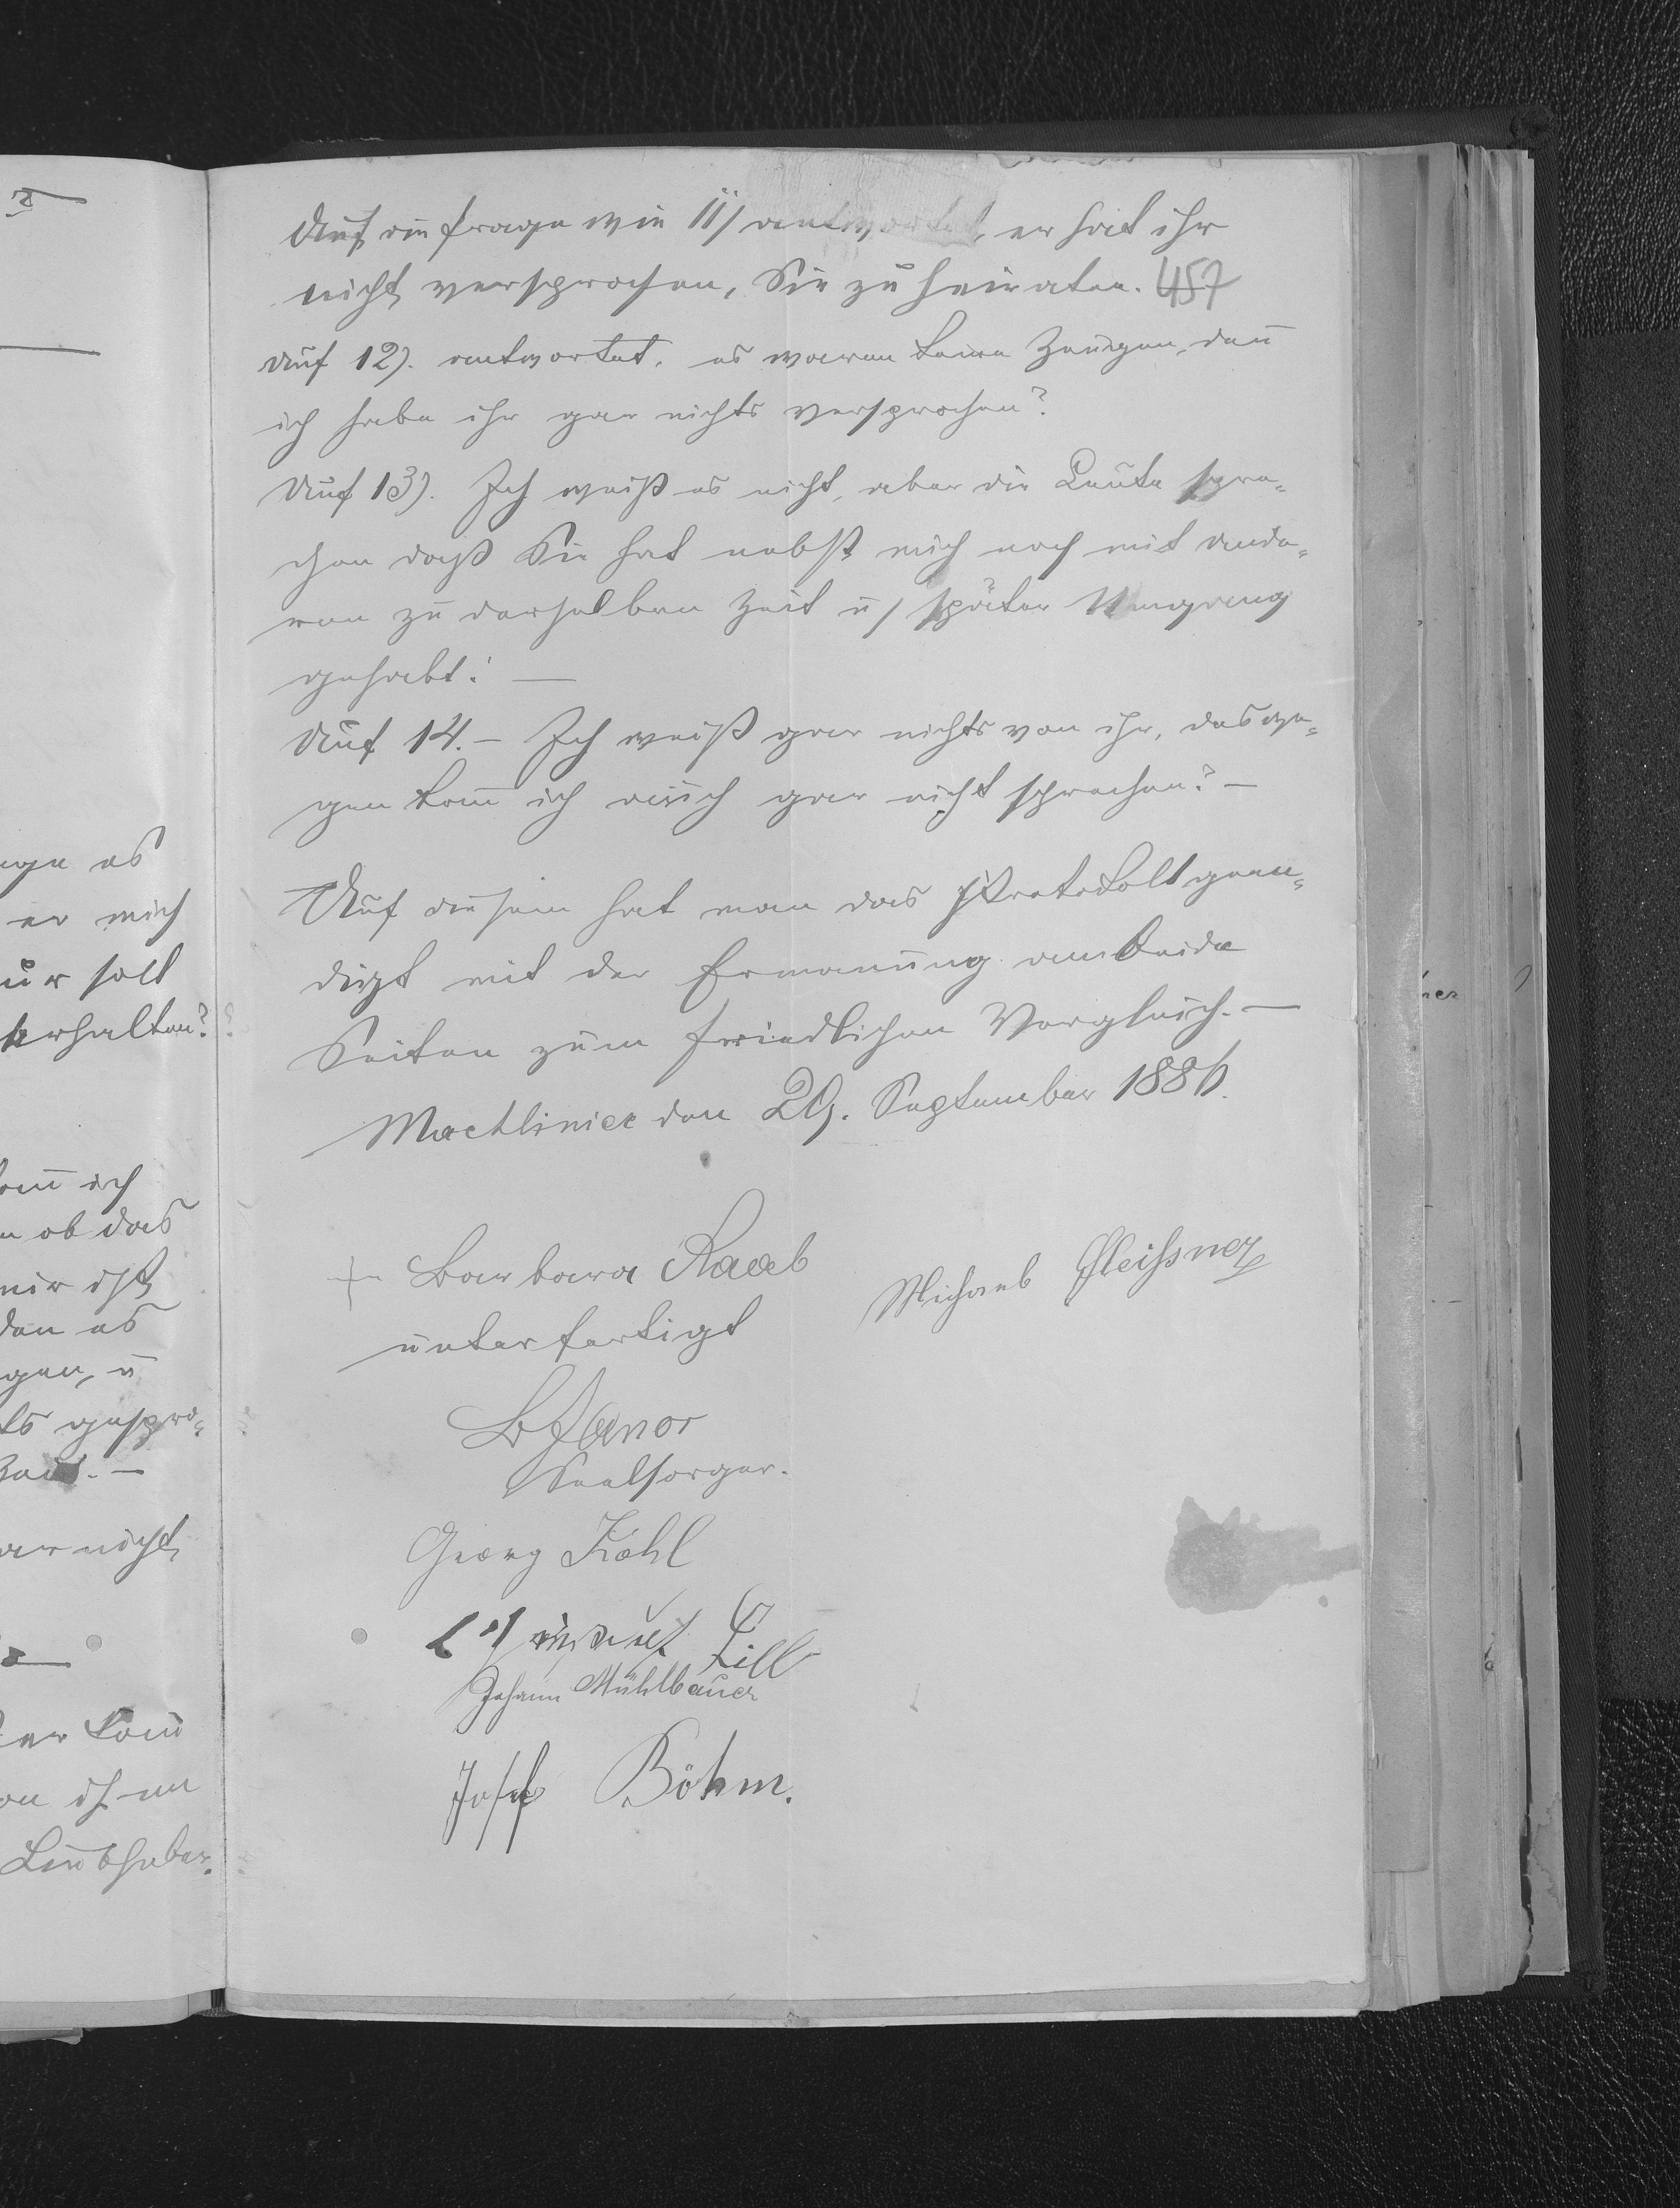 Auf die Frage wie 11/ antwortet, er hat ihr
nicht versprochen, Sie zu heiraten. 457
Auf 12). antwortet, es waren keine Zeugen, den̄
ich habe ihr gar nichts versprochen?
Auf 13). Ich weiß es nicht, aber die Leute spre-
chen daß Sie hat nebst mich noch mit ande-
ren zu derselben Zeit u/ später Umgang
gehabt! —
Auf 14. – Ich weiß gar nichts von ihr, dasge-
gen kan̄ ich auch gar nicht sprechen? –
Auf diesem hat man das Protokoll geen-
digt mit der Ermanung am beide
Seiten zum friedlichen Vergleich. —
Machliniec den 29. September 1886.
+ Barbara Raab
Michael Gleissner
unterfertigt
Seelsorger.
Georg Köhl
Till
Johann Mühlbauer
Josef Böhm.
er mich
erhalten?
ich
ob das
ist
es
gespro-
nicht
er kan̄
Liebhaber.